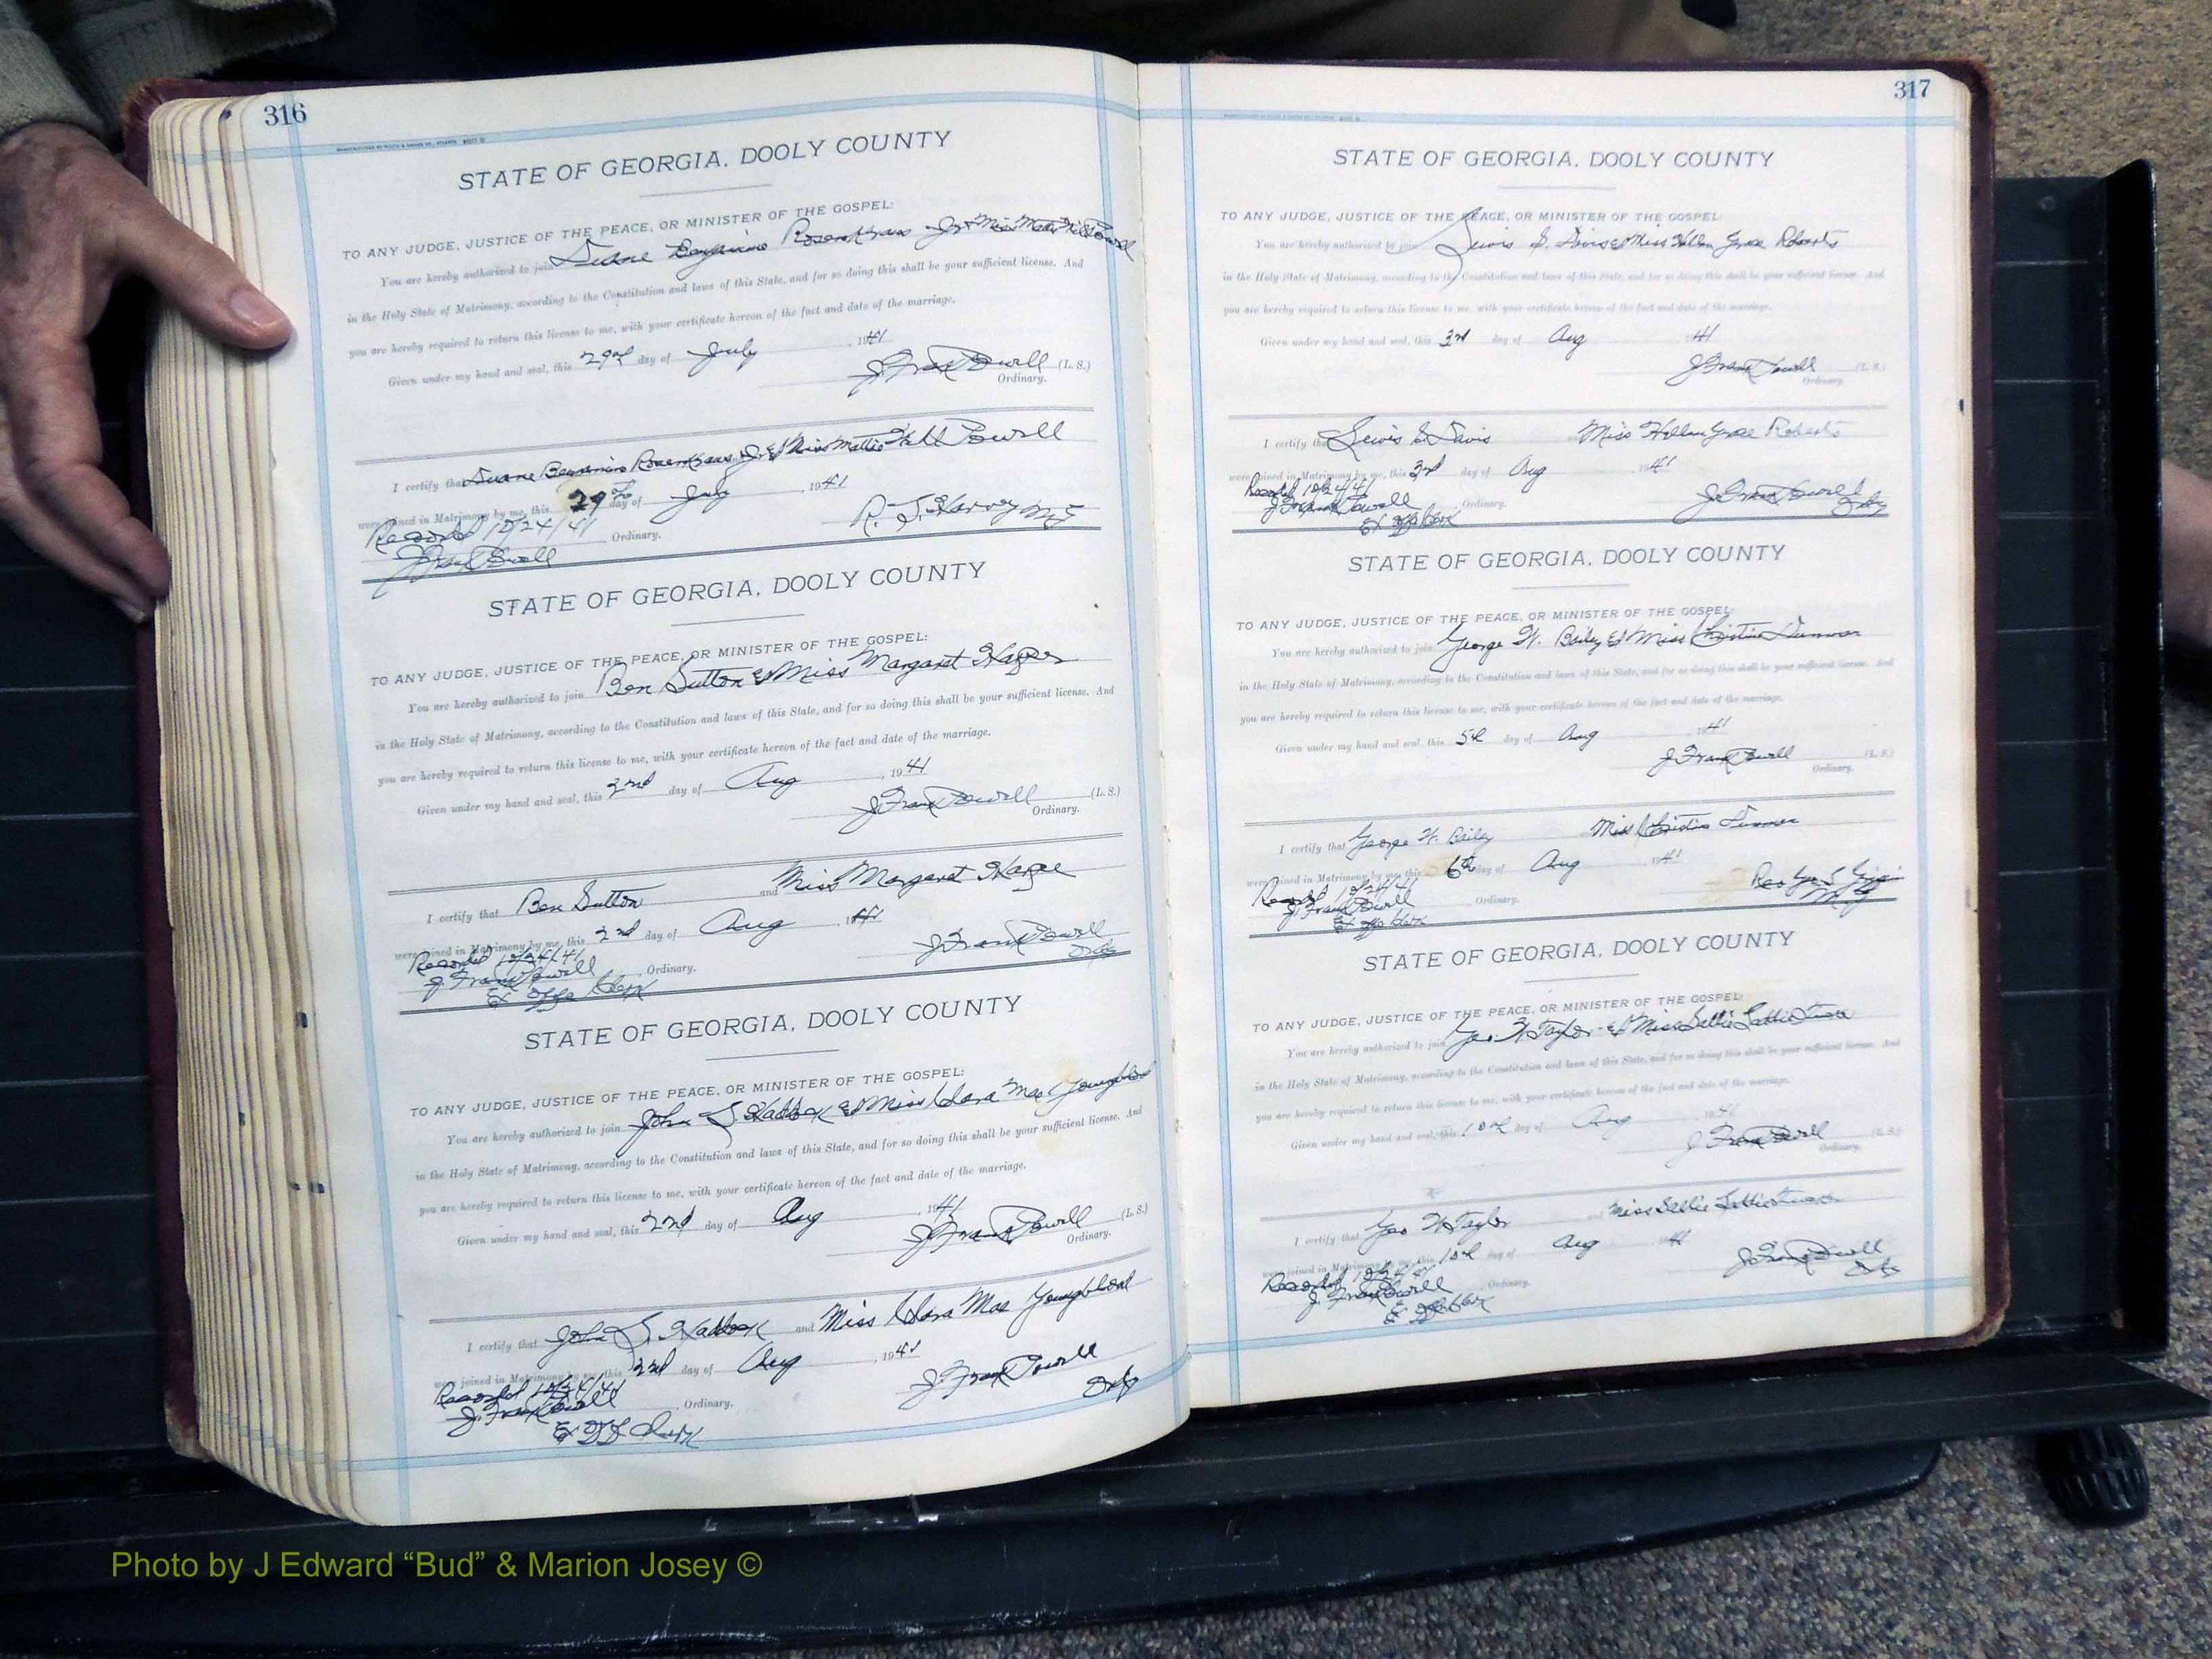 316
STATE OF GEORGIA, DOOLY COUNTY
TO ANY JUDGE, JUSTICE OF THE PEACE, OR MINISTER OF THE GOSPEL:
You are hereby authorized to join Duane Benjamin Rosenkrans Jr & Miss Mattie Powell
in the Holy State of Matrimony, according to the Constitution and laws of this State, and for so doing this shall be your sufficient license. And
you are hereby required to return this license to me, with your certificate hereon of the fact and date of the marriage.
Given under my hand and seal, this 29th day of July, 1941
J. Frank Powell (L. S.)
Ordinary.
I certify that Duane Benjamin Rosenkrans Jr & Miss Mattie Powell
were joined in Matrimony by me, this 29th day of July, 1941
Recorded 10/24/41 Ordinary. R. S. Harvey MG
J Frank Powell
STATE OF GEORGIA, DOOLY COUNTY
TO ANY JUDGE, JUSTICE OF THE PEACE, OR MINISTER OF THE GOSPEL:
You are hereby authorized to join Ben Sutton & Miss Margaret
in the Holy State of Matrimony, according to the Constitution and laws of this State, and for so doing this shall be your sufficient license. And
you are hereby required to return this license to me, with your certificate hereon of the fact and date of the marriage.
Given under my hand and seal, this 2nd day of Aug, 1941
J. Frank Powell (L. S.)
Ordinary.
I certify that Ben Sutton and Miss Margaret
were joined in Matrimony by me, this 2nd day of Aug, 1941
Recorded 10/24/41 Ordinary. J Frank Powell
J Frank Powell Ordy
Ex Offo Clerk
STATE OF GEORGIA, DOOLY COUNTY
TO ANY JUDGE, JUSTICE OF THE PEACE, OR MINISTER OF THE GOSPEL:
You are hereby authorized to join John S. Haddock & Miss Clara Mae Youngblood
in the Holy State of Matrimony, according to the Constitution and laws of this State, and for so doing this shall be your sufficient license. And
you are hereby required to return this license to me, with your certificate hereon of the fact and date of the marriage.
Given under my hand and seal, this 2nd day of Aug, 1941
J Frank Powell (L. S.)
Ordinary.
I certify that John S. Haddock and Miss Clara Mae Youngblood
were joined in Matrimony by me, this 2nd day of Aug, 1941
Recorded 10/24/41 Ordinary. J. Frank Powell
J. Frank Powell Ordy
Ex Off Clerk
317
STATE OF GEORGIA, DOOLY COUNTY
TO ANY JUDGE, JUSTICE OF THE PEACE, OR MINISTER OF THE GOSPEL:
You are hereby authorized to join Lewis S. Davis & Miss Hellen Grace Roberts
in the Holy State of Matrimony, according to the Constitution and laws of this State, and for so doing this shall be your sufficient license. And
you are hereby required to return this license to me, with your certificate hereon of the fact and date of the marriage.
Given under my hand and seal, this 3rd day of Aug 1941
J Frank Powell (L. S.)
Ordinary.
I certify that Lewis S. Davis Miss Hellen Grace Roberts
were joined in Matrimony by me, this 3rd day of Aug 1941
Recorded 10/24/41 Ordinary. J. Frank Powell
J Frank Powell Ordy
Ex Offo Clerk
STATE OF GEORGIA, DOOLY COUNTY
TO ANY JUDGE, JUSTICE OF THE PEACE, OR MINISTER OF THE GOSPEL:
You are hereby authorized to join George W. Bailey & Miss Christine
in the Holy State of Matrimony, according to the Constitution and laws of this State, and for so doing this shall be your sufficient license. And
you are hereby required to return this license to me, with your certificate hereon of the fact and date of the marriage.
Given under my hand and seal, this 5th day of Aug 1941
J Frank Powell (L. S.)
Ordinary.
I certify that George W. Bailey Miss Christine
were joined in Matrimony by me, this 6th day of Aug 1941
Recorded 10/24/41 Ordinary. Rev
J. Frank Powell MG
Ex Offo Clerk
STATE OF GEORGIA, DOOLY COUNTY
TO ANY JUDGE, JUSTICE OF THE PEACE, OR MINISTER OF THE GOSPEL:
You are hereby authorized to join Geo W Taylor & Miss Sallie
in the Holy State of Matrimony, according to the Constitution and laws of this State, and for so doing this shall be your sufficient license. And
you are hereby required to return this license to me, with your certificate hereon of the fact and date of the marriage.
Given under my hand and seal, this 10th day of Aug 1941
J Frank Powell (L. S.)
Ordinary.
I certify that Geo W Taylor and Miss Sallie
were joined in Matrimony by me, this 10th day of Aug 1941
Recorded 10/24/41 Ordinary. J Frank Powell
J. Frank Powell Ordy
Ex Offo Clerk
Photo by J Edward “Bud” & Marion Josey ©